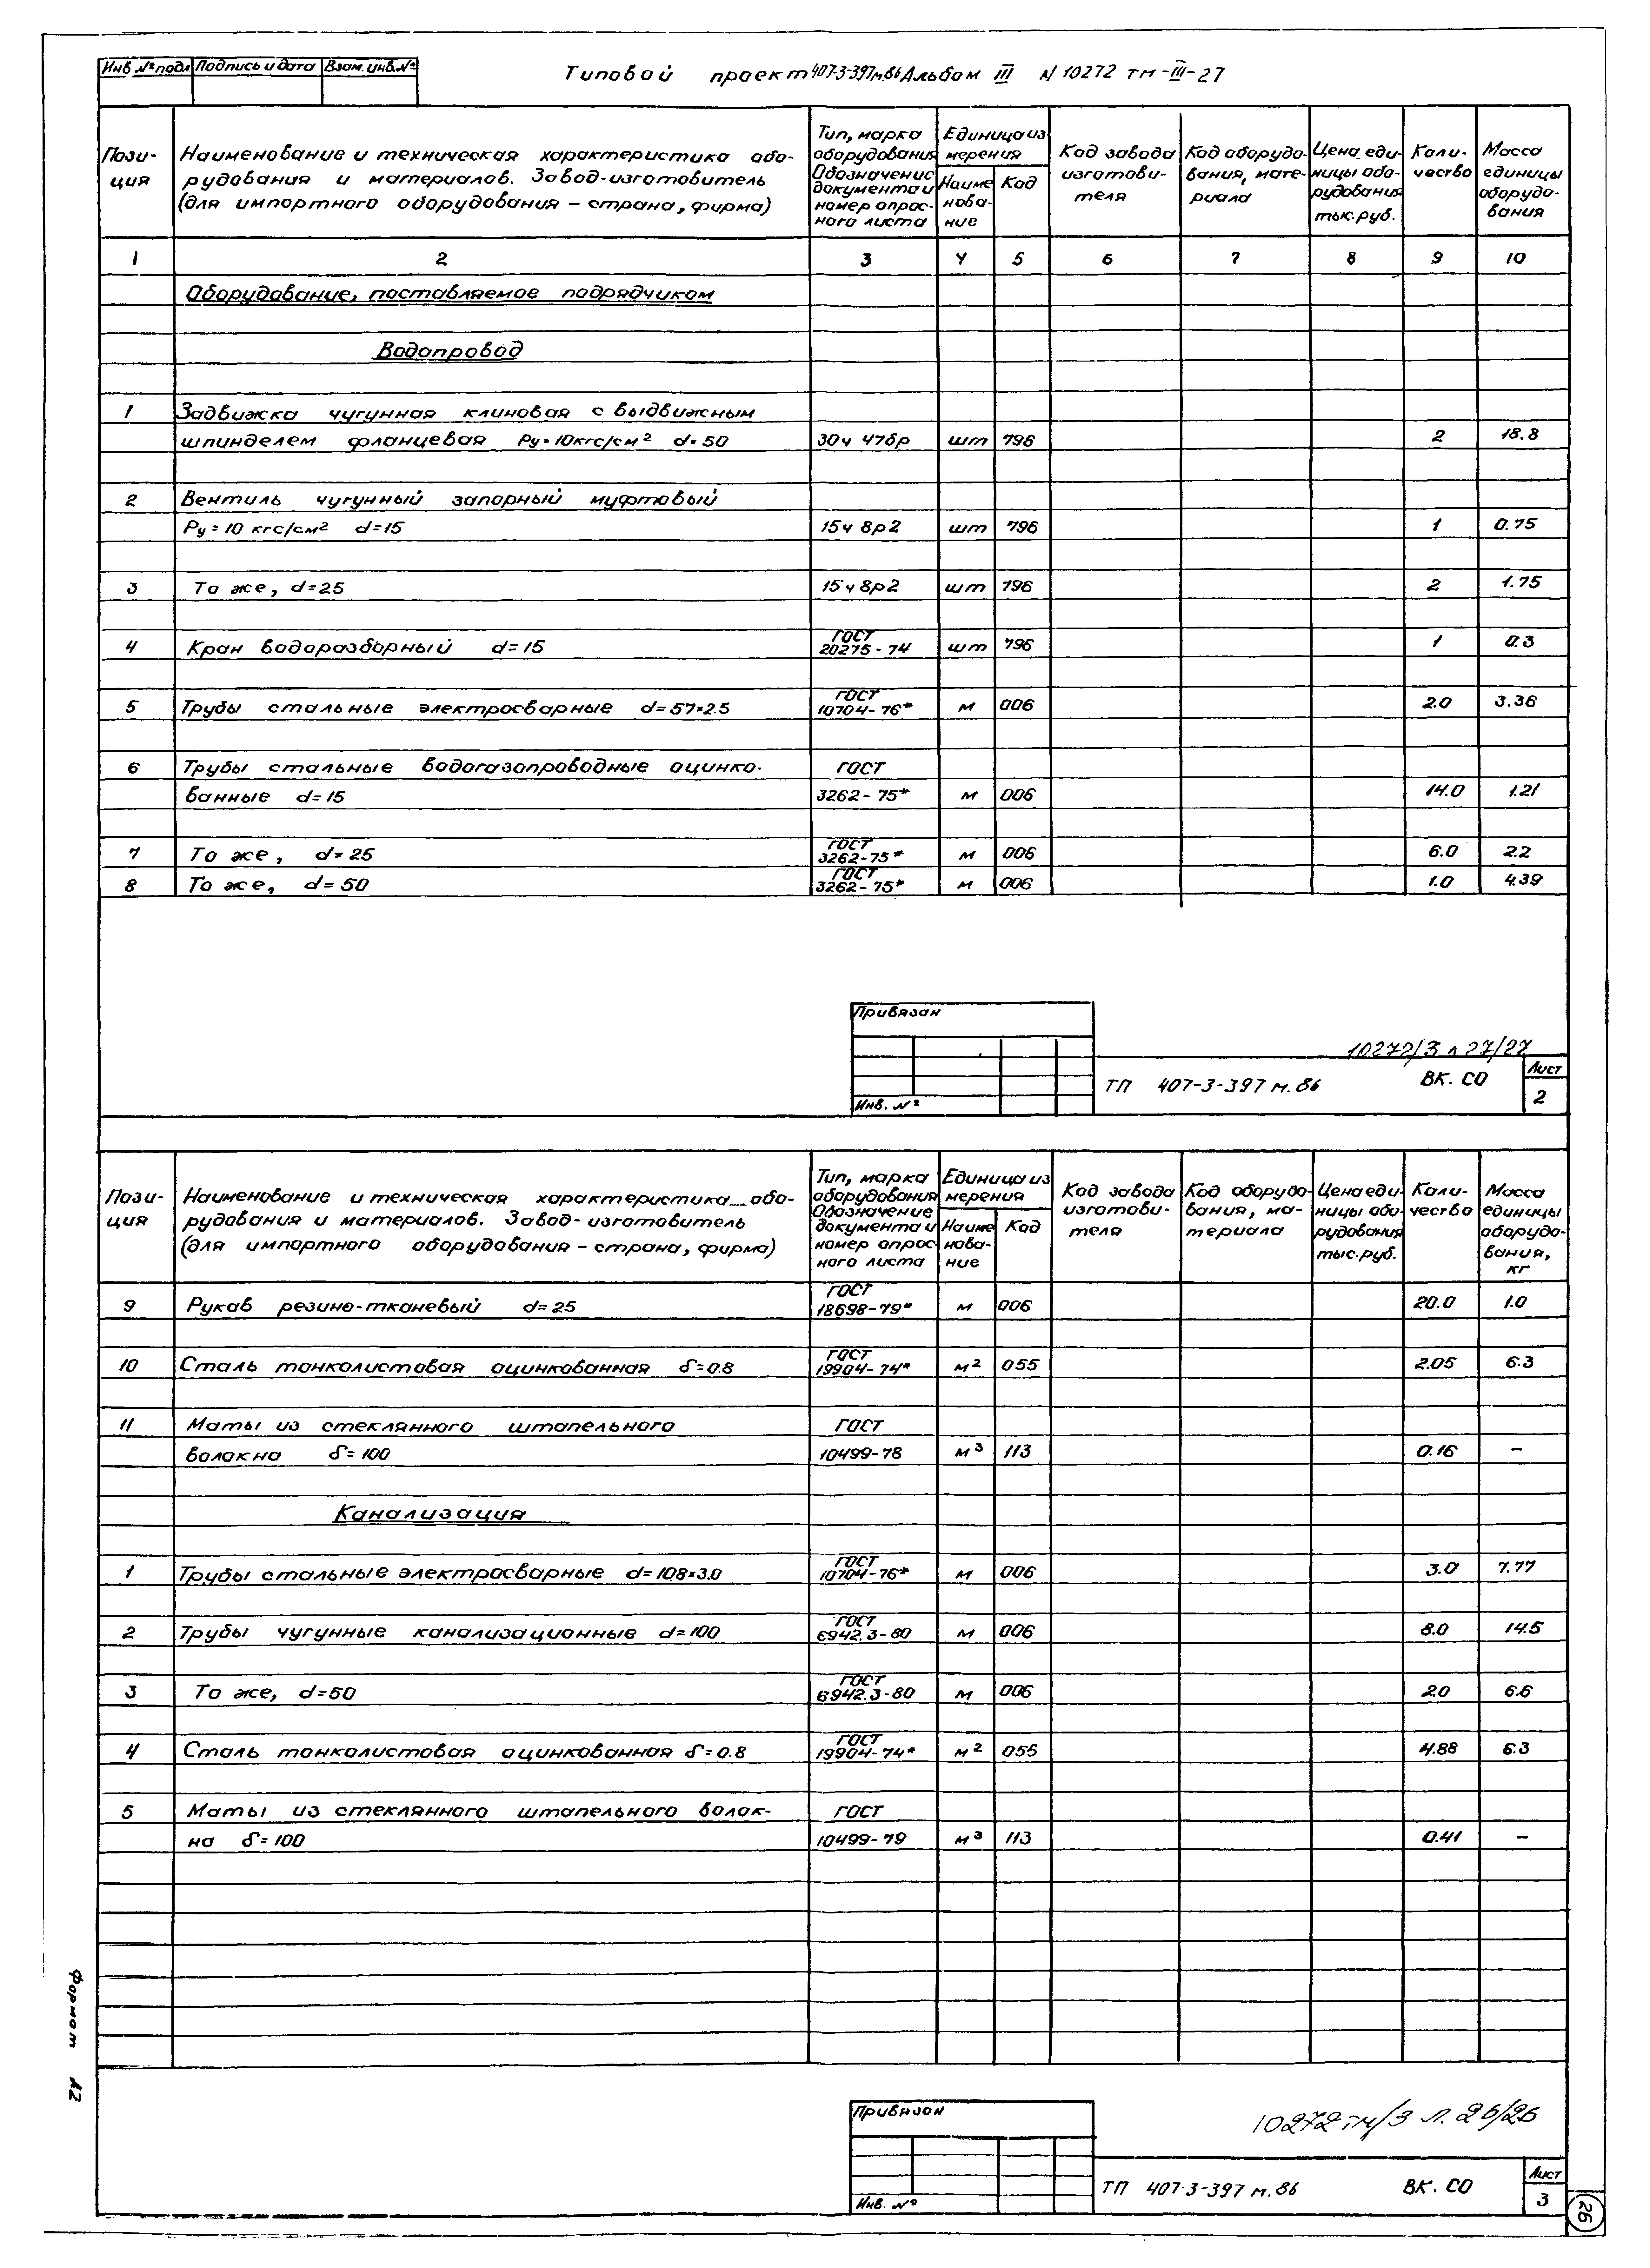 Инв № подл Подпись и дата Взам. инв. №
Типовой проект 407-3-397м.86 Альбом III N 10272 тм-III-27
Пози-
ция
Наименование и техническая характеристика обо-
рудования и материалов. Завод-изготовитель
(для импортного оборудования – страна, фирма)
Тип, марка
оборудования
Обозначение
документа и
номер опрос-
ного листа
Единица из-
мерения
Наиме
нова-
ние
Код
Код завода
изготови-
теля
Код оборудо-
вания, мате-
риала
Цена еди-
ницы обо-
рудования
тыс.руб.
Коли-
чество
Масса
единицы
оборудо-
вания
1 2 3 4 5 6 7 8 9 10
Оборудование, поставляемое подрядчиком
Водопровод
1 Задвижка чугунная клиновая с выдвижным
шпинделем фланцевая Ру=10кгс/см² d=50 30ч 47бр шт 796 2 18.8
2 Вентиль чугунный запорный муфтовый
Ру=10 кгс/см² d=15 15ч 8р2 шт 796 1 0.75
3 То же, d=25 15ч 8р2 шт 796 2 1.75
4 Кран водоразборный d=15 ГОСТ 20275-74 шт 796 1 0.3
5 Трубы стальные электросварные d=57×2.5 ГОСТ 10704-76* м 006 2.0 3.36
6 Трубы стальные водогазопроводные оцинко- ГОСТ
ванные d=15 3262-75* м 006 14.0 1.21
7 То же, d=25 ГОСТ 3262-75* м 006 6.0 2.2
8 То же, d=50 ГОСТ 3262-75* м 006 1.0 4.39
Привязан
Инв. №
10272/3 л 27/27
ТП 407-3-397 м.86 ВК. СО
Лист
2
Пози-
ция
Наименование и техническая характеристика обо-
рудования и материалов. Завод-изготовитель
(для импортного оборудования – страна, фирма)
Тип, марка
оборудования
Обозначение
документа и
номер опрос-
ного листа
Единица из
мерения
Наиме
нова-
ние
Код
Код завода
изготови-
теля
Код оборудо-
вания, ма-
териала
Цена еди-
ницы обо-
рудования
тыс.руб.
Коли-
чество
Масса
единицы
оборудо-
вания,
кг
9 Рукав резино-тканевый d=25 ГОСТ 18698-79* м 006 20.0 1.0
10 Сталь тонколистовая оцинкованная δ=0.8 ГОСТ 19904-74* м² 055 2.05 6.3
11 Маты из стеклянного штапельного ГОСТ
волокна δ=100 10499-78 м³ 113 0.16 –
Канализация
1 Трубы стальные электросварные d=108×3.0 ГОСТ 10704-76* м 006 3.0 7.77
2 Трубы чугунные канализационные d=100 ГОСТ 6942.3-80 м 006 8.0 14.5
3 То же, d=50 ГОСТ 6942.3-80 м 006 2.0 6.6
4 Сталь тонколистовая оцинкованная δ=0.8 ГОСТ 19904-74* м² 055 4.88 6.3
5 Маты из стеклянного штапельного волок- ГОСТ
на δ=100 10499-79 м³ 113 0.41 –
Привязан
Инв. №
10272тм/3 л. 26/26
ТП 407-3-397 м.86 ВК. СО
Лист
3
26
Формат А2